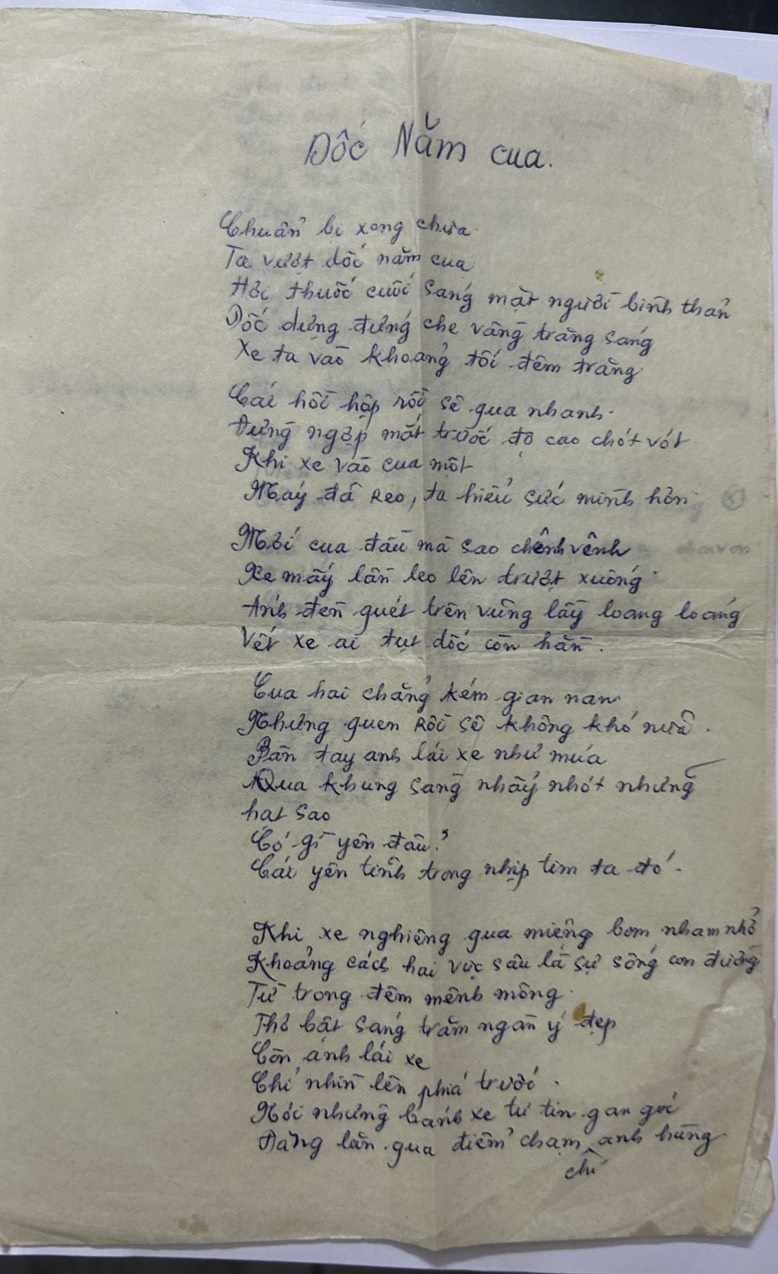 Dốc Năm cua.
Chuẩn bị xong chưa
Ta vượt dốc năm cua
Hơi thuốc cuối sáng mặt người bình thản
Dốc dựng đứng che vầng trăng sáng
Xe ta vào khoảng tối đêm trăng
Cái hồi hộp rồi sẽ qua nhanh.
Đừng ngợp mắt trước độ cao chót vót
Khi xe vào cua một
Máy đã reo, ta hiểu sức mình hơn
Mới cua đầu mà sao chênh vênh
Xe mấy lần leo lên trượt xuống
Ánh đèn quét trên vũng lầy loang loáng
Vết xe ai tụt dốc còn hằn.
Cua hai chẳng kém gian nan
Nhưng quen rồi sẽ không khó nữa.
Bàn tay anh lái xe như múa
Qua khung sáng nhảy nhót những
hạt sao
Có gì yên đâu?
Cái yên tĩnh trong nhịp tim ta đó.
Khi xe nghiêng qua miệng bom nham nhở
Khoảng cách hai vực sâu là sự sống con đường
Từ trong đêm mênh mông
Thơ bật sáng trăm ngàn ý đẹp
Còn anh lái xe
Chỉ nhìn lên phía trước.
Nơi những bánh xe tự tin gan góc
Đang lăn qua điểm chạm anh hùng
chỉ